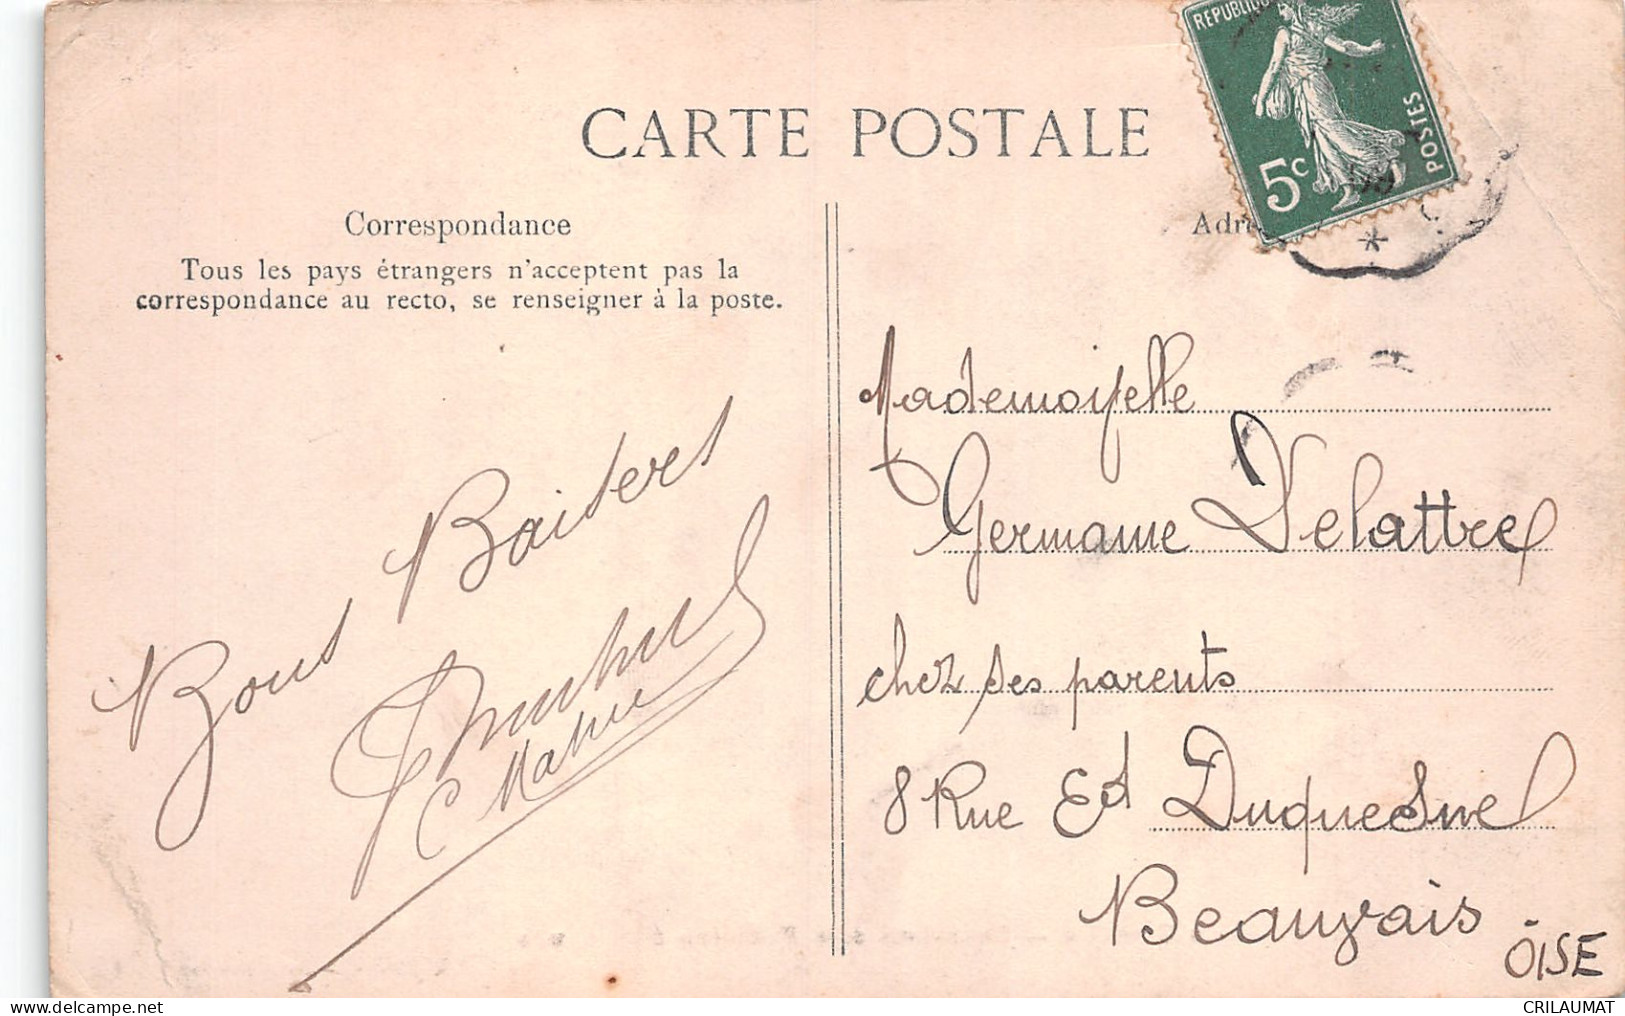 CARTE POSTALE
REPUBLIQUE
5c
POSTES
Correspondance
Tous les pays étrangers n'acceptent pas la
correspondance au recto, se renseigner à la poste.
Adre
Bons Baisers
Mademoiselle
Germaine Delattre
chez ses parents
8 Rue Ed Duquesne
Beauvais
OISE
CRILAUMAT